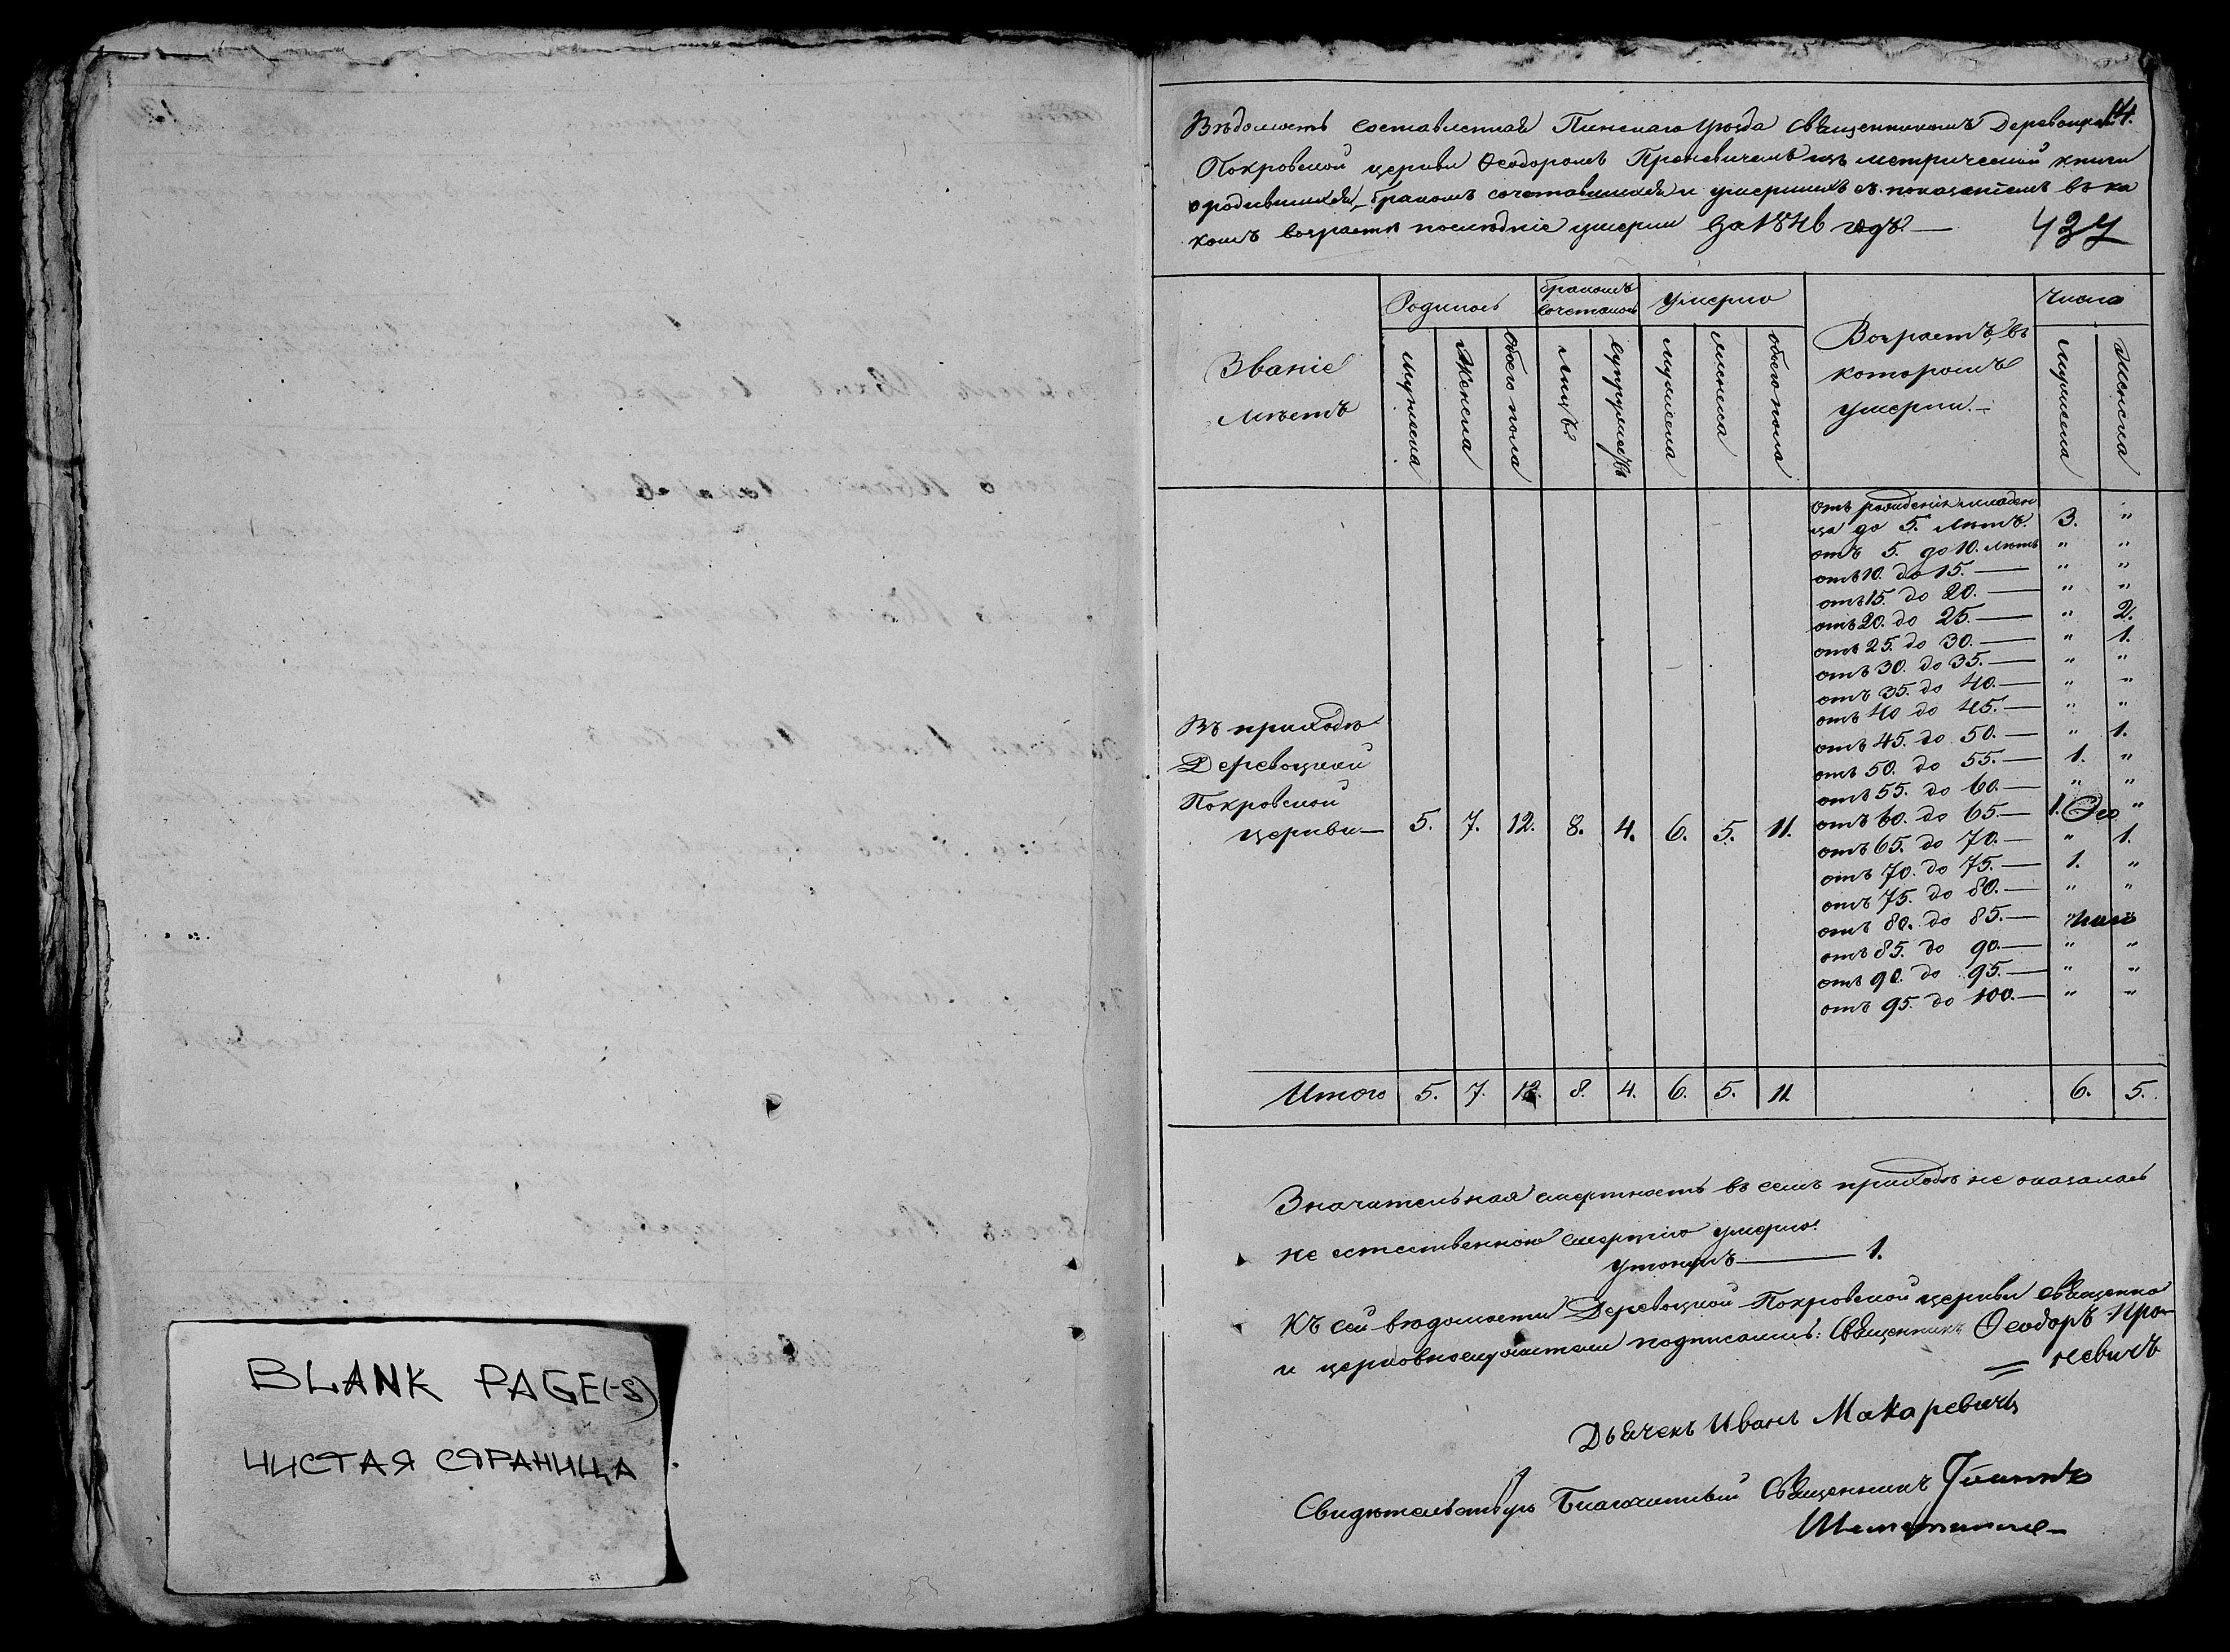 BLANK PAGE(-S)
ЧИСТАЯ СТРАНИЦА
14.
Вѣдомость составленная Пинскаго Уѣзда Священникомъ Деревоцкой
Покровской церкви Ѳеодоромъ Проневичемъ изъ метрической книги
о родившихся, бракомъ сочетавшихся и умершихъ съ показаніемъ въ ка
комъ возрастѣ послѣдніе умерли за 1846 годъ.—
437
Званіе мѣстъ
Родилось
бракомъ сочеталось
умерло
Возрастъ, въ которомъ умерли.
Число
Мужеска
Женска
Обоего пола
Лицъ
Супружествъ
Мужеска
Женска
обоего пола
Мужеска
Женска
отъ рожденія младен
ца до 5. лѣтъ. 3. "
отъ 5. до 10. лѣтъ " "
отъ 10. до 15.— " "
отъ 15. до 20.— " "
отъ 20. до 25.— " 2.
отъ 25. до 30.— " 1.
отъ 30. до 35.— " "
отъ 35. до 40.— " "
отъ 40 до 45.— " "
отъ 45. до 50.— " 1.
отъ 50. до 55.— 1. "
отъ 55. до 60.— " "
отъ 60. до 65.— 1. "
отъ 65. до 70.— " 1.
отъ 70. до 75.— 1. "
отъ 75. до 80.— " "
отъ 80. до 85.— " "
отъ 85. до 90.— " "
отъ 90. до 95.— " "
отъ 95. до 100.— " "
Въ приходѣ
Деревоцкой
Покровской
церкви— 5. 7. 12. 8. 4. 6. 5. 11.
Итого 5. 7. 12. 8. 4. 6. 5. 11 6. 5.
Значительная смертность въ семъ приходѣ не оказалась
не естественною смертію умерло:
утонулъ— 1.
Къ сей вѣдомости Деревоцкой Покровской церкви священно
и церковнослужители подписались: Священникъ Ѳеодоръ Про-
невичъ
Дьячекъ Иванъ Макаревичъ
Свидѣтельствую Благочинный Священникъ